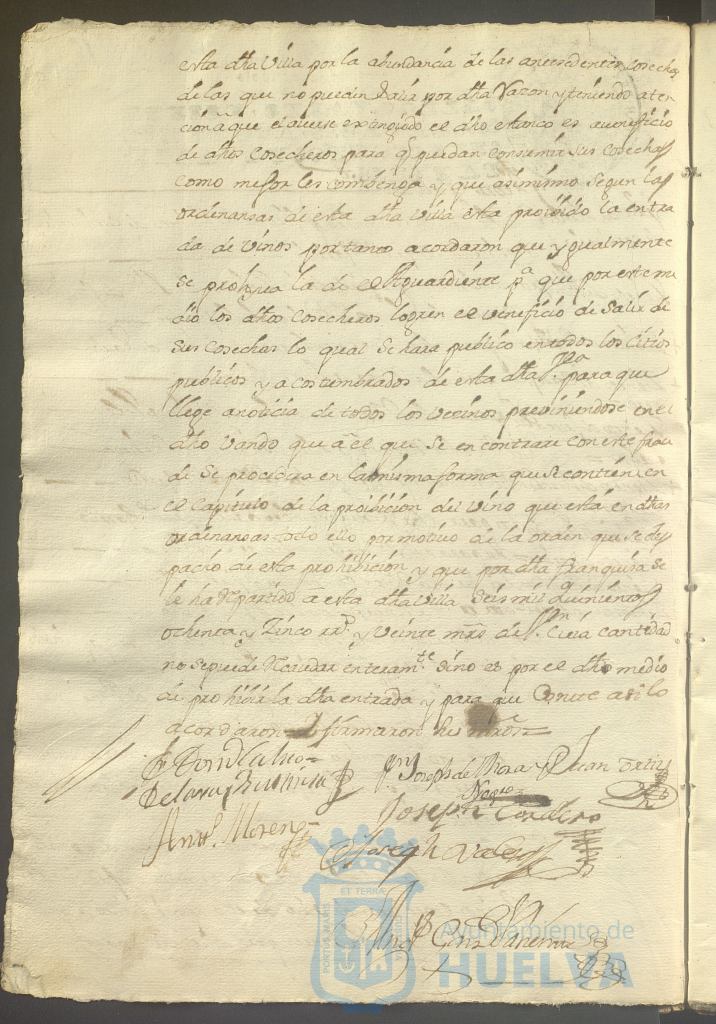 esta dha Villa por la abundancia de las antecedentes cosechas
de las que no puedan Salir por dha razon y teniendo aten
cion a que el averse extinguido el dho estanco es a veneficio
de dhos cosecheros para q puedan consumir sus cosechas
como mejor les combenga y que asimismo segun las
ordenansas de esta dha villa esta proibido la entra
da de vinos por tanto acordaron que ygualmente
se prohiva la de el Aguardiente pa que por este me
dio los dhos cosecheros logren el veneficio de Salir de
sus cosechas lo qual se hara publico en todos los sitios
publicos y acostumbrados de esta dha para que
llege a noticia de todos los vecinos previniendose en el
dho vando que a el que se encontrare con este frau
de se procedera en la misma forma que se contiene en
el Capitulo de la proibicion del vino que esta en dhas
ordenansas todo ello por motivo de la orden que se des
pacho de esta prohibicion y que por dha franquisa se
le ha repartido a esta dha Villa Seis mil quinientos
ochenta y Zinco rrs y veinte mrs de Vn Cuia cantidad
no se puede recaudar enteramte sino es por el dho medio
de prohibir la dha entrada y para que Conste asi lo
acordaron firmaron
Joseph de Mora Juan Ortiz
Negro
Joseph Cordero
Anto Moreno
Joseph
PORTUS MARIS
ET TERRAE
Ayuntamiento de
HUELVA